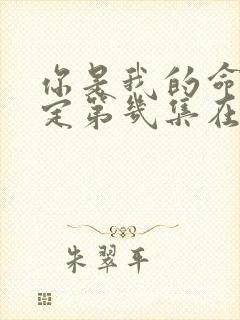 你是我的命
定第几集在
朱翠平